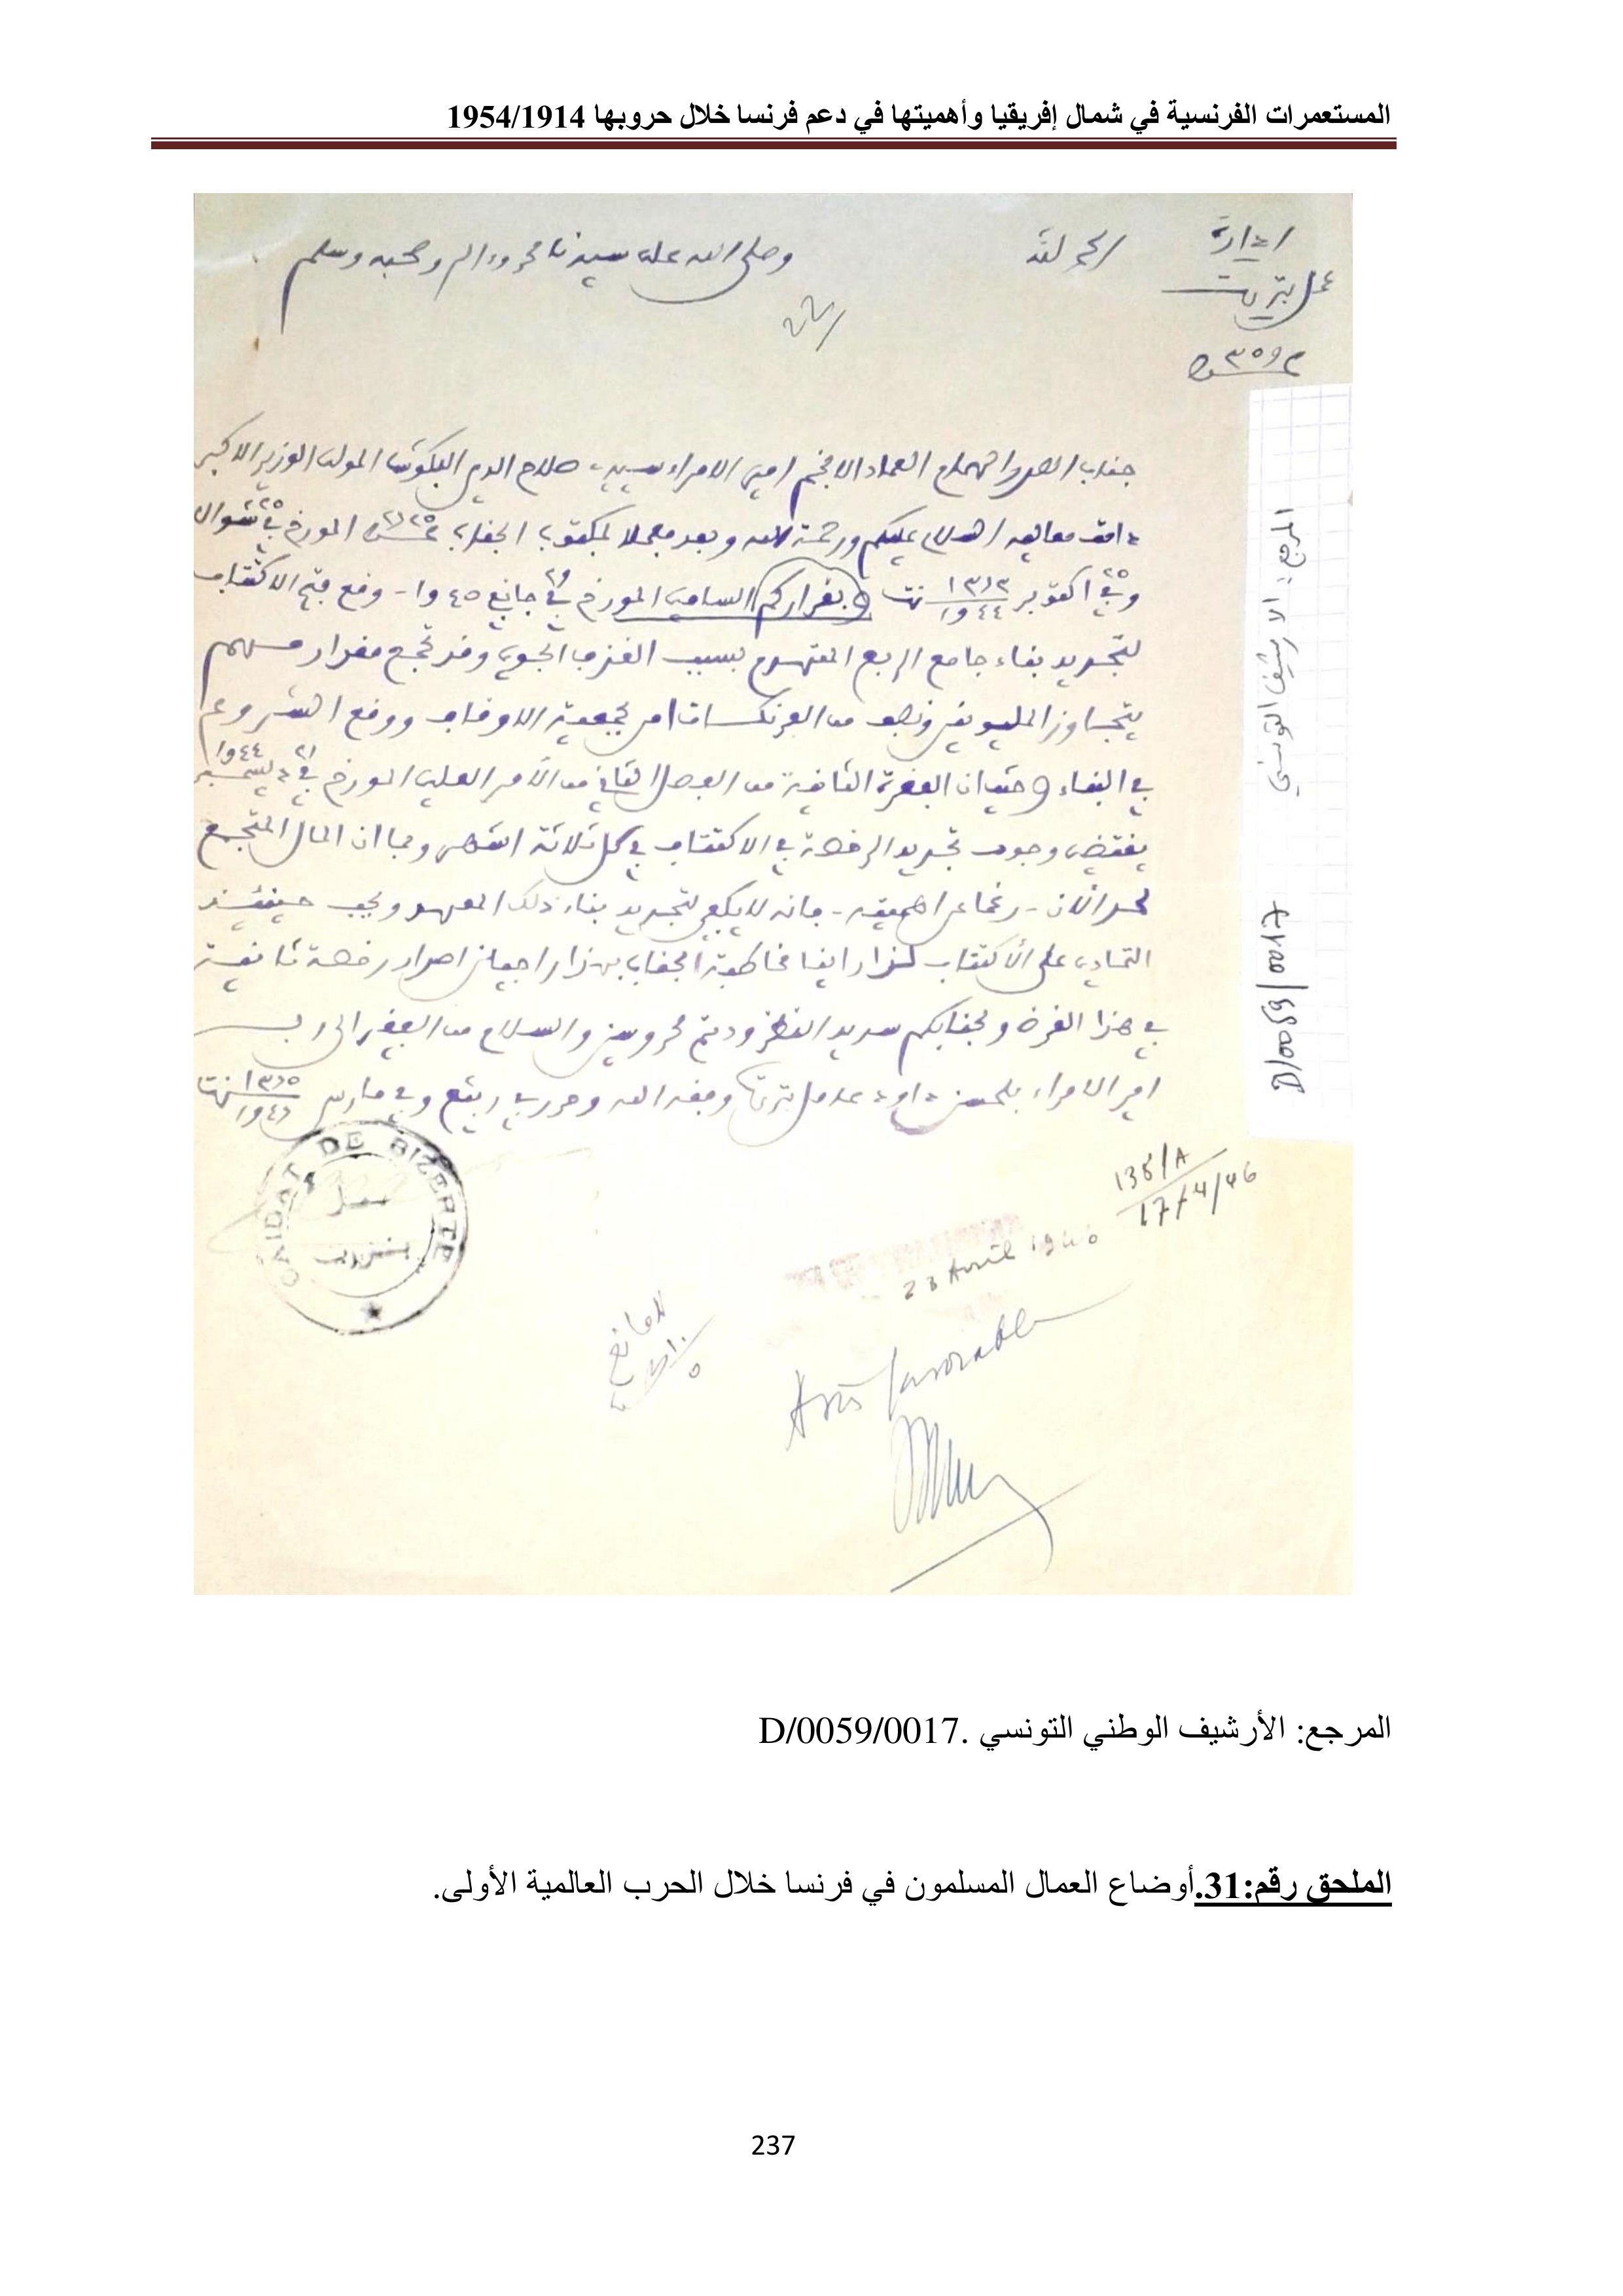 المستعمرات الفرنسية في شمال إفريقيا وأهميتها في دعم فرنسا خلال حروبها 1954/1914
ادارة
الحمد لله
وصلى الله على سيدنا محمد وءاله وصحبه وسلم
عمل بنزرت
جناب الصدر الهمام العماد الافخم امير الامراء سيدي صلاح الدين البكوش المولى الوزير الاكبر
دامت معاليه السلام عليكم ورحمة الله وبعد فعملا بمكتوب الجناب المورخ في شوال
وفي ٢٥ اكتوبر ١٣٦٣ ١٩٤٤ وبقراركم السامي المورخ في جانفي ١٩٤٥ - وقع فتح الاكتتاب
لتجديد بناء جامع الربع المتهدم بسبب القذف الجوي وقد تجمع مقدار مهم
يتجاوز المليونين ونصف من الفرنكات من جمعية الاوقاف ووقع الشروع
في البناء وحيث ان الفقرة الثانية من الفصل الثاني من الأمر العلي المورخ في ٢١ ديسمبر ١٩٤٤
يقتضي وجوب تجديد الرخصة في الاكتتاب في كل ثلاثة اشهر وبما ان المال المتجمع
لحد الآن - رغما عن اهميته - فانه لا يكفي لتجديد بناء ذلك المعهد ويجب حينئذ
التمادي على الاكتتاب لذا راينا مخاطبة الجناب بهذا راجيا اصدار رخصة ثانية
في هذا الغرض ولجنابكم سديد النظر ودمتم محروسين والسلام من الفقير الى ربه
امير الامراء بلحسن داود عامل بنزرت وفقه الله وحرر في ربيع وفي مارس ١٣٦٥ ١٩٤٦
CAIDAT DE BIZERTE
عمل
بنزرت
135/A
17/4/46
23 Avril 1946
Avis favorable
المرجع: الارشيف التونسي
D/0059/0017
المرجع: الأرشيف الوطني التونسي .D/0059/0017
الملحق رقم:31.أوضاع العمال المسلمون في فرنسا خلال الحرب العالمية الأولى.
237